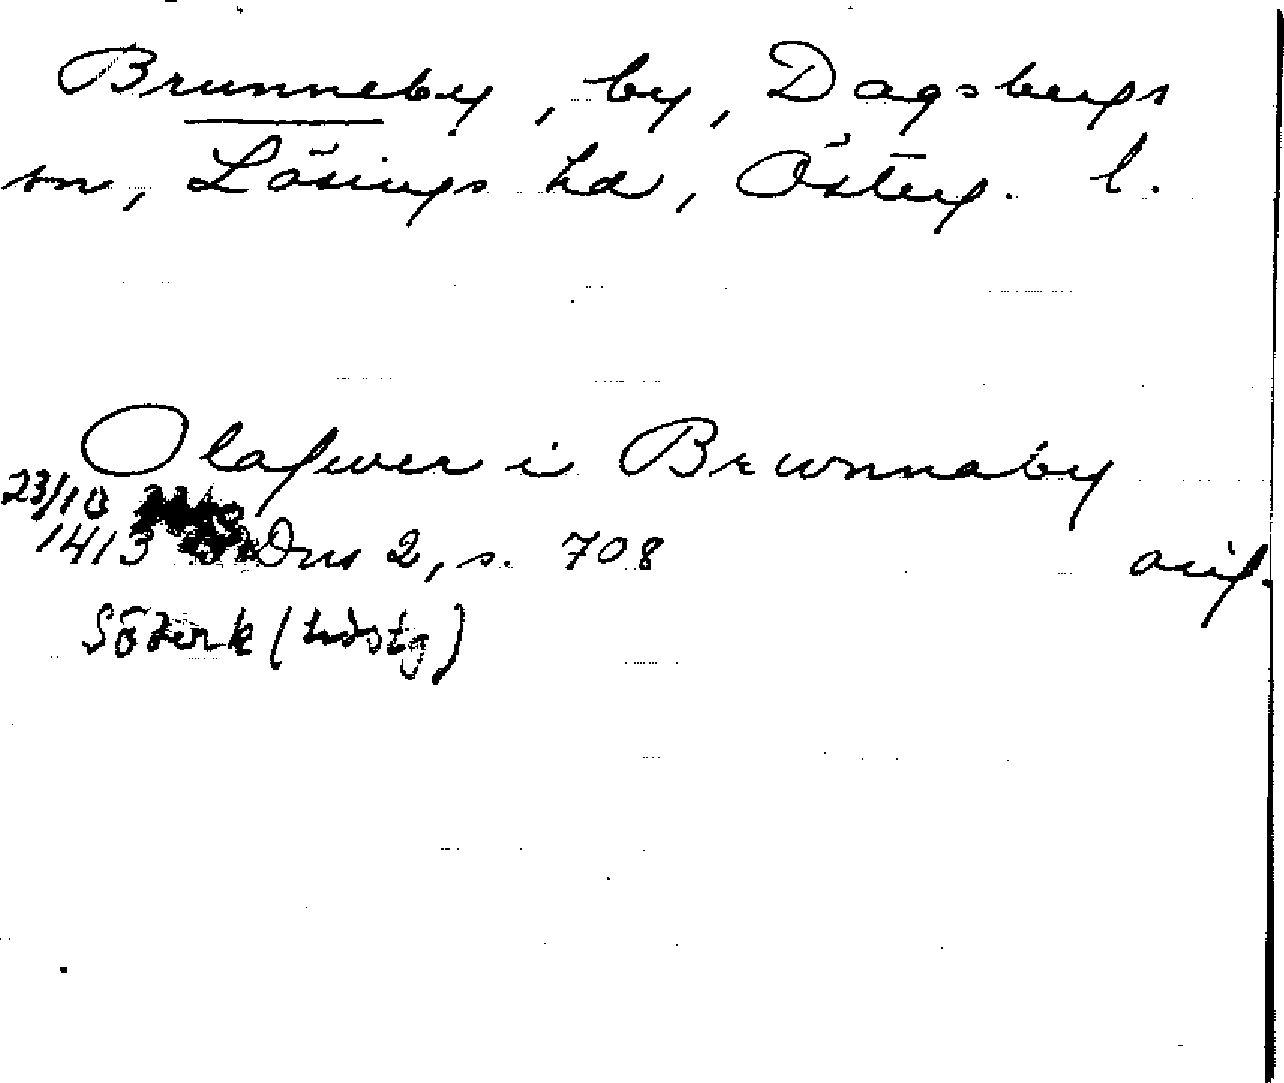 Brunneby, by, Dagsbergs
sn, Lösings hd, Österg. l.
Olafwer i Brwnnaby
23/10
1413 Dns 2, s. 708 orig.
Söderk (hdstg)